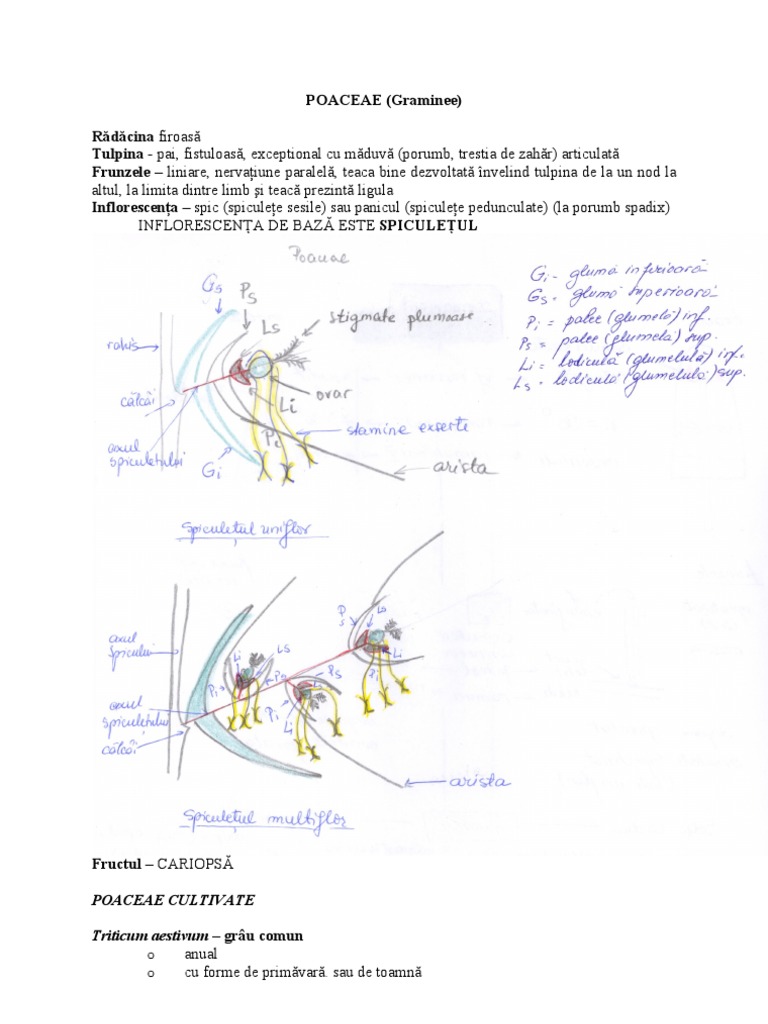 POACEAE (Graminee)
Rădăcina firoasă
Tulpina - pai, fistuloasă, exceptional cu măduvă (porumb, trestia de zahăr) articulată
Frunzele – liniare, nervațiune paralelă, teaca bine dezvoltată învelind tulpina de la un nod la
altul, la limita dintre limb şi teacă prezintă ligula
Inflorescența – spic (spiculețe sesile) sau panicul (spiculețe pedunculate) (la porumb spadix)
INFLORESCENȚA DE BAZĂ ESTE SPICULEȚUL
Poaceae
Gi - glumă inferioară
Gs - glumă superioară
Pi = palee (glumelă) inf.
Ps = palee (glumelă) sup.
Li = lodiculă (glumelulă) inf.
Ls = lodiculă (glumelulă) sup.
Gs
Ps
Ls
stigmate plumoase
rahis
călcâi
ovar
Li
Pi
stamine exserte
axul
spiculetului
Gi
arista
Spiculețul uniflor
Ps
Ls
axul
spicului
Li
Ls
Li
Pi
Ps
Ps
Pi
axul
spiculețului
Pi
Li
călcâi
arista
Spiculețul multiflor
Fructul – CARIOPSĂ
POACEAE CULTIVATE
Triticum aestivum – grâu comun
o anual
o cu forme de primăvară. sau de toamnă